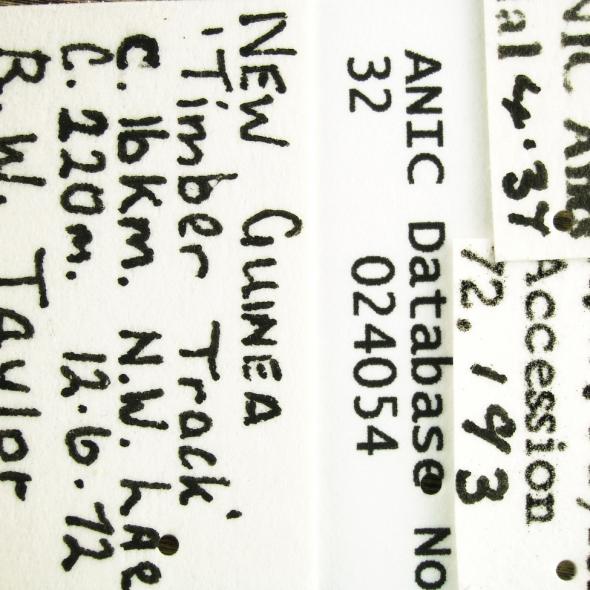 NEW GUINEA
'Timber Track'
C. 16km. N.W. Lae
C. 220m. 12.6.72
R. W. Taylor
ANIC Database No
32 024054
Accession
72. 193